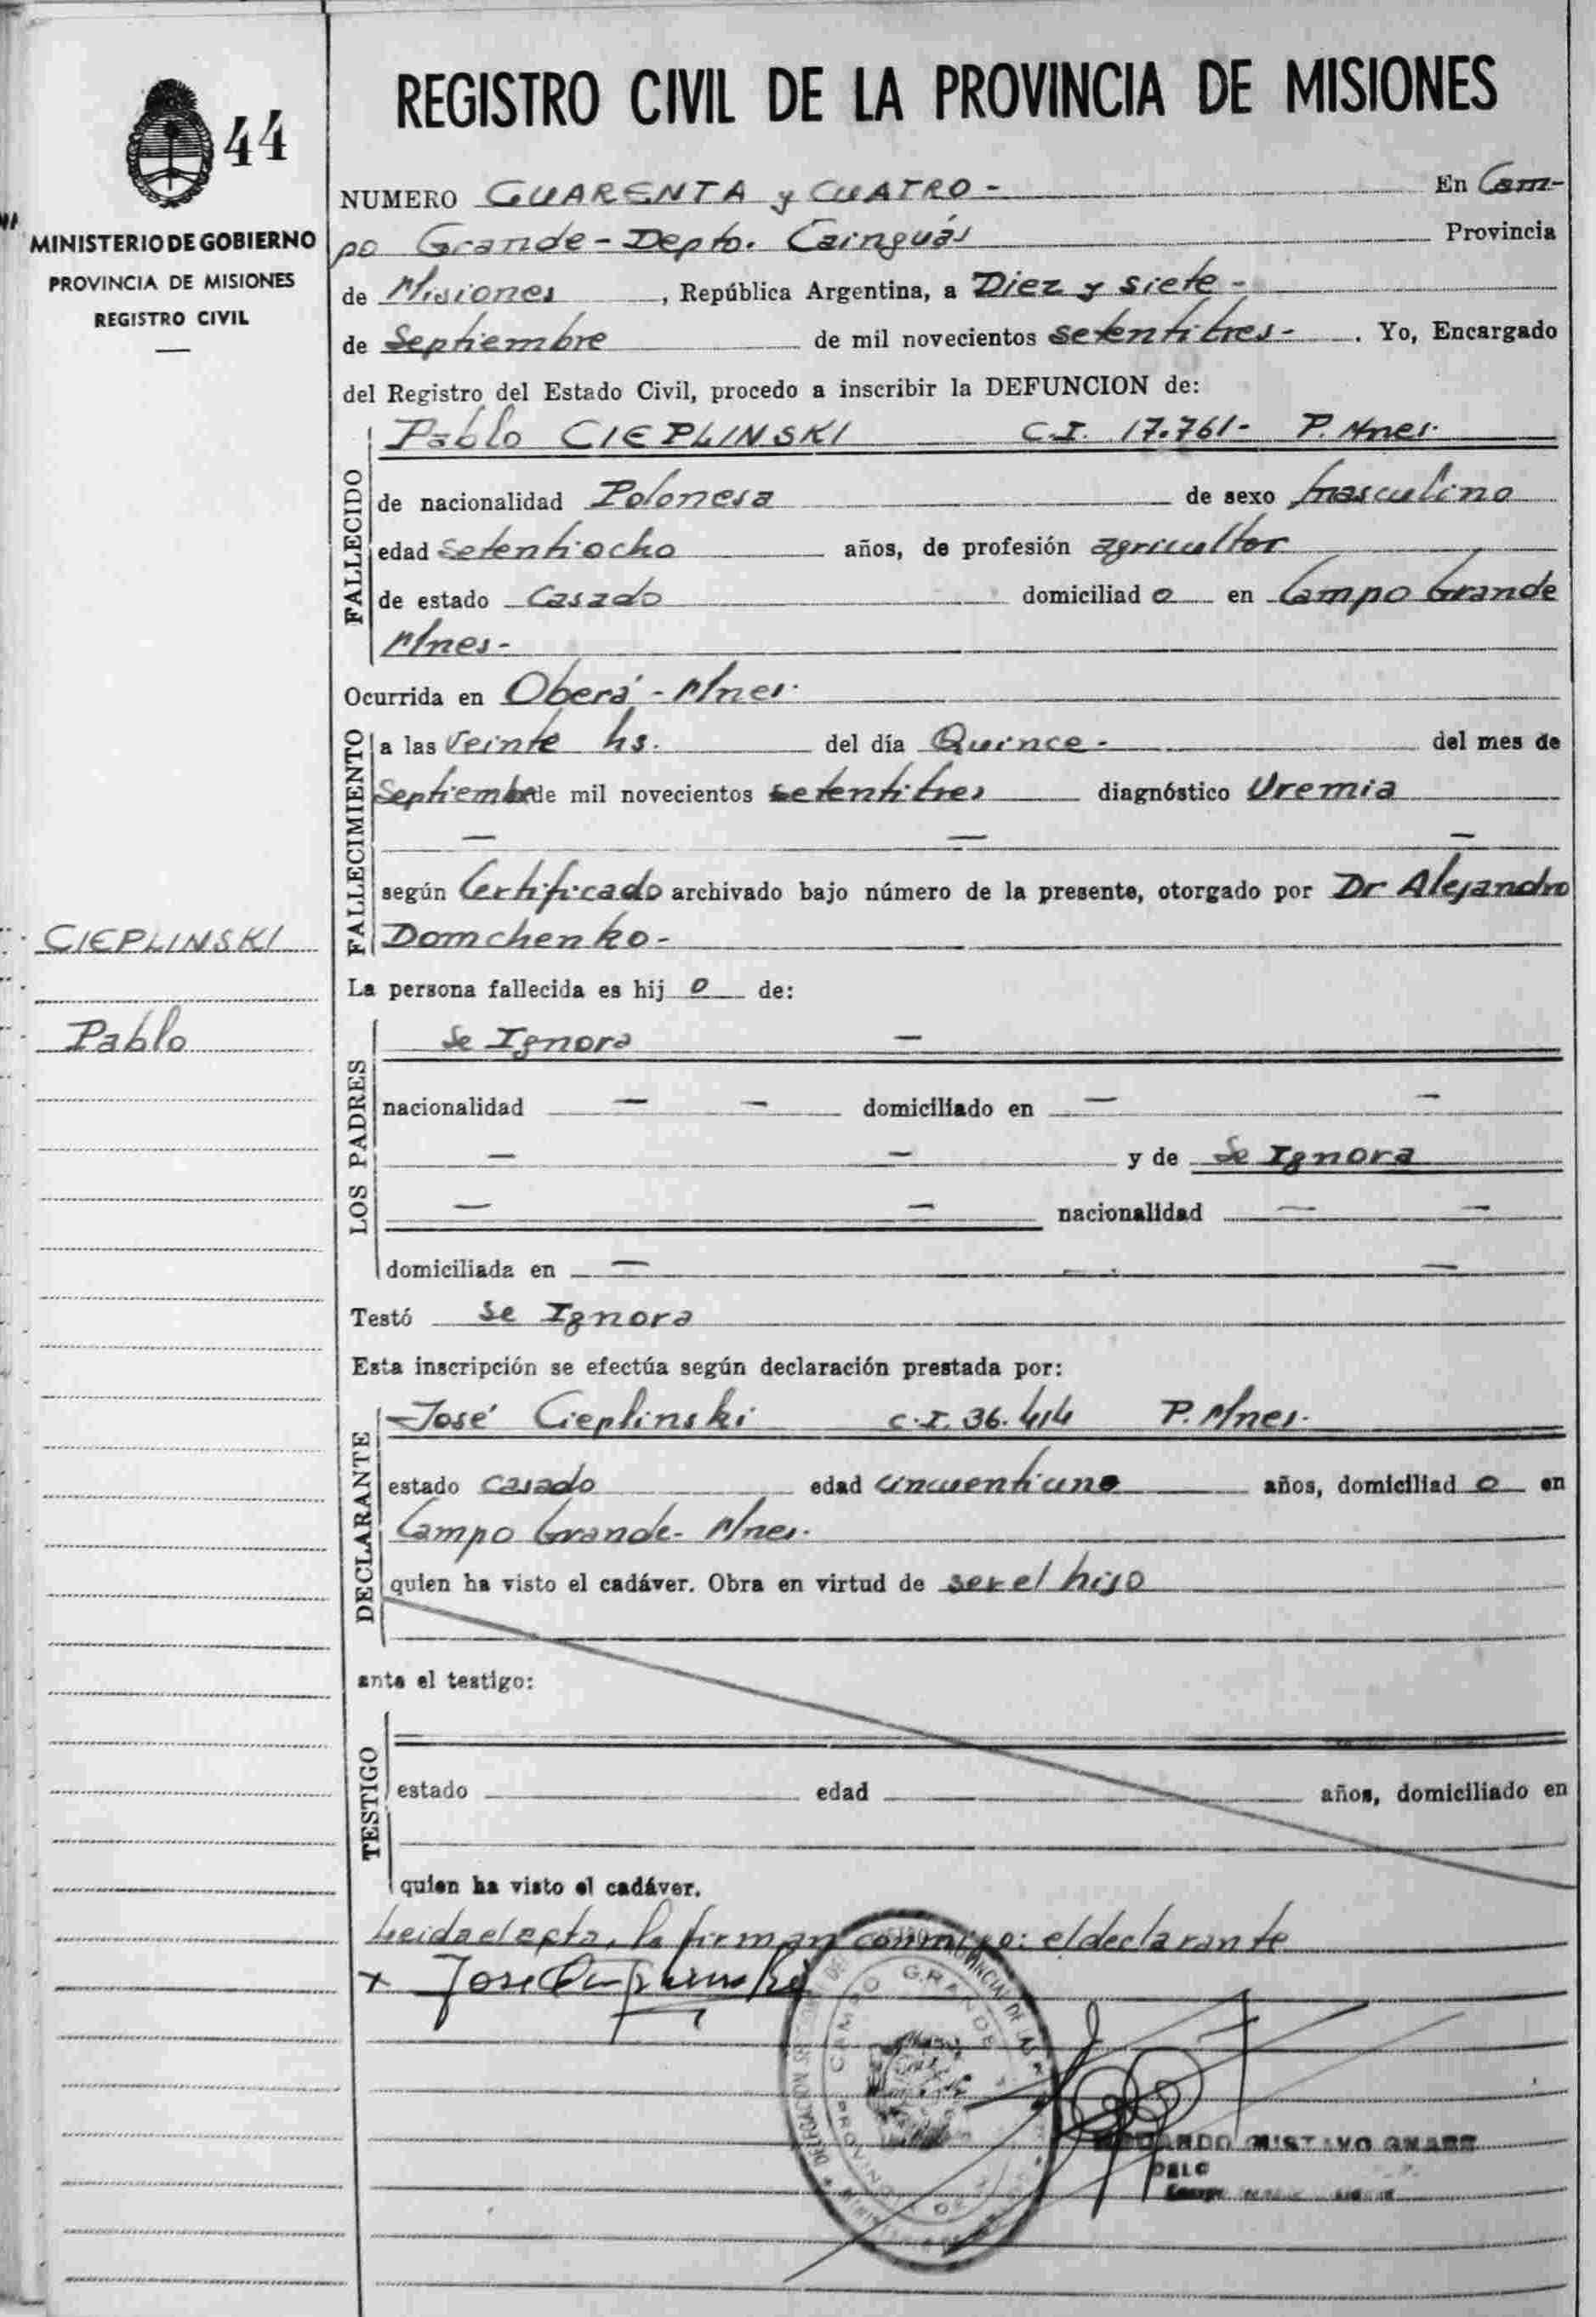 44
MINISTERIO DE GOBIERNO
PROVINCIA DE MISIONES
REGISTRO CIVIL
CIEPLINSKI
Pablo
REGISTRO CIVIL DE LA PROVINCIA DE MISIONES
NUMERO CUARENTA y CUATRO - En Cam-
po Grande - Depto. Cainguás Provincia
de Misiones, República Argentina, a Diez y siete -
de Septiembre de mil novecientos setentitres-. Yo, Encargado
del Registro del Estado Civil, procedo a inscribir la DEFUNCION de:
Pablo CIEPLINSKI C.I. 17.761- P. Mnes.
FALLECIDO
de nacionalidad Polonesa de sexo masculino
edad setentiocho años, de profesión agricultor
de estado Casado domiciliad o en Campo Grande
Mnes-
Ocurrida en Oberá - Mnes.
FALLECIMIENTO
a las veinte hs. del día Quince - del mes de
Septiembre de mil novecientos setentitres diagnóstico Uremia
— — —
según Certificado archivado bajo número de la presente, otorgado por Dr Alejandro
Domchenko-
La persona fallecida es hij o de:
LOS PADRES
Se Ignora —
nacionalidad — — domiciliado en — —
— — y de Se Ignora
— — nacionalidad — —
domiciliada en — — —
Testó Se Ignora
Esta inscripción se efectúa según declaración prestada por:
DECLARANTE
José Cieplinski C.I. 36.414 P. Mnes.
estado casado edad cincuentiuno años, domiciliad o en
Campo Grande- Mnes.
quien ha visto el cadáver. Obra en virtud de ser el hijo
ante el testigo:
TESTIGO
estado edad años, domiciliado en
quien ha visto el cadáver.
Leida el acta, la firman conmigo: el declarante
x Jose Cieplinski
CAMPO GRANDE
PROVINCIA DE
GUSTAVO